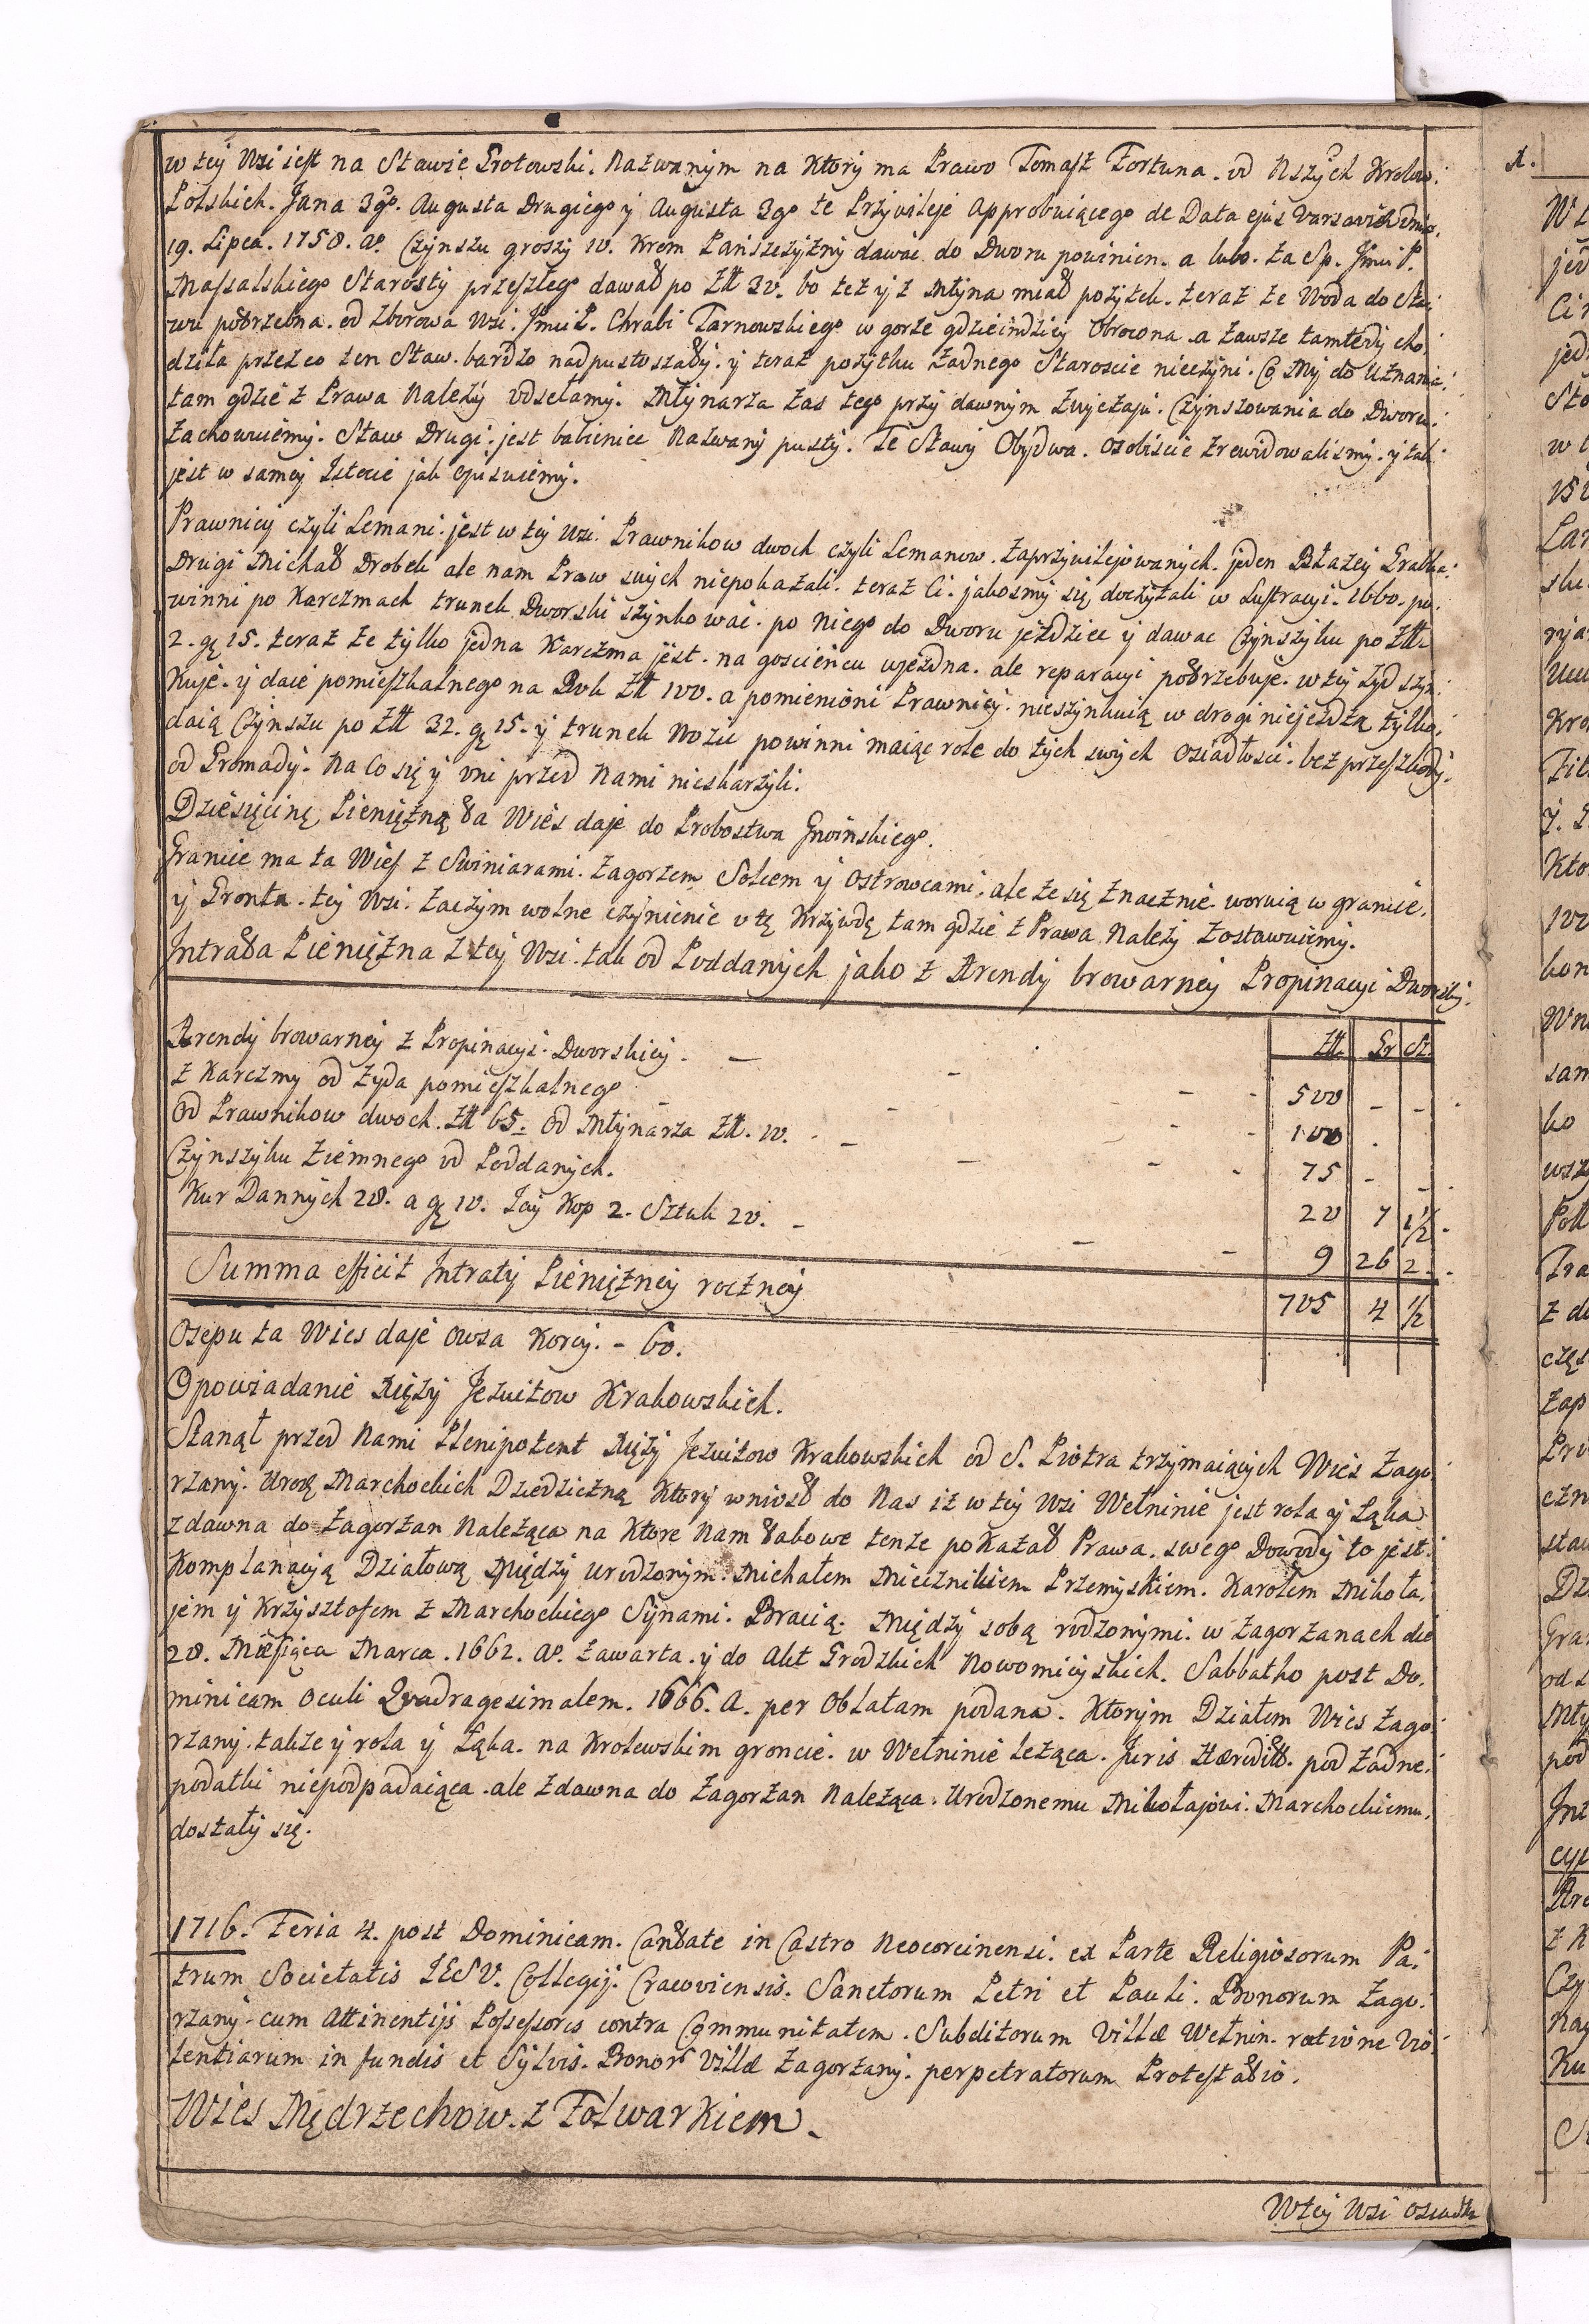 w tey Wsi iest na Stawie Grotowski. Nazwanym na Ktory ma Prawo Tomasz Fortuna. od N͠szych Krolow
Polskich. Jana 3go. Augusta Drugiego y Augusta 3go te Przywileje Approbuiącego de Data ejus Varsaviæ dnia.
19. Lipca. 1758. ao. Czynszu groszy 10. Krom Panszczyzny dawac do Dworu powinien. a lubo. za Sp. Jmci P.
Massalskiego Starosty przeszłego dawał po Zł 30. bo tez y z Młyna miał pozytek. teraz ze Woda do Sta:
wu potrzebna. od Zborowa Wsi. Jmci P. Chrabi Tarnowskiego w gorze gdzieindziey Obrocona a zawsze tamtędy cho:
dziła przez co ten Staw. bardzo nadpustoszały. y teraz pozytku zadnego Staroscie nieczyni. Co My do Uznania:
tam gdzie z Prawa Nalezy odsełamy. Młynarza zas tego przy dawnym zwyczaju. Czynszowania do Dworu:
Zachowuiemy. Staw Drugi: jest babieniec Nazwany pusty. Te Stawy Obydwa. osobiscie zrewidowalismy. y tak
jest w samey Istocie jak opisuiemy.
Prawnicy czyli Lemani. jest w tey Wsi. Prawnikow dwoch czyli Lemanow. zaprzywilejowanych. jeden Błazey Grabka:
Drugi Michał Drobek ale nam Praw swych niepokazali. teraz Ci. jakosmy się doczytali w Lustracyi. 1660. po:
winni po Karczmach trunek Dworski szynkowac. po Niego do Dworu jezdzic y dawac Czynszyku po Zł
2. gr 15. teraz ze tylko jedna Karczma jest. na goscieńcu ujezdna. ale reparacyi potrzebuje. w tey Zyd szyn:
kuje. y daie pomieszkalnego na Rok Zł 100. a pomienioni Prawnicy. nieszynkuią w drogi niejezdzą tylko:
daią Czynszu po Zł 32. gr 15. y trunek Wozic powinni maiąc role do tych swych osiadłosci. bez przeszkody.
od Gromady. Na Co się y oni przed Nami nieskarzyli.
Dziesięcinę Pieniężną ta Wies daje do Probostwa Gnoinskiego.
Granice ma ta Wies z Swiniarami. Zagorzem Solcem y Ostrowcami. ale ze się znacznie worują w granice.
y Gronta. tey Wsi. Zaczym wolne czynienie o tę Krzywdę tam gdzie z Prawa Nalezy Zostawuiemy.
Intrata Pieniężna z tey Wsi. tak od Poddanych jako z Arendy browarney Propinacyi Dworskiy.
Zł. Gr Sz.
Arendy browarney z Propinacyi. Dworskiey. 500 - -
z Karczmy od Zyda pomieszkalnego 100 .
Od Prawnikow dwoch. Zł 65. Od Młynarza Zł. 10. 75 - -
Czynszyku Ziemnego od Poddanych. 20 7 1½
Kur Dannych 28. a gr 10. Jay Kop 2. Sztuk 20. 9 26 2
Summa efficit Intraty Pieniężney roczney 705 4 ½
Osepu ta Wies daje Owsa Korcy. - 60.
Opowiadanie Xięzy Jezuitow Krakowskich.
Stanął przed Nami Plenipotent Xięzy Jezuitow Krakowskich od S. Piotra trzymaiących Wies Zago:
rzany. Urodz Marchockich Dziedziczną Ktory wniosł do Nas iz w tey Wsi Wełninie jest rola y Łąka
zdawna do Zagorzan Naleząca na Ktore Nam takowe tenze pokazał Prawa. swego Dowody to jest:
Komplanacyją Działową Między Urodzonym. Michałem Miecznikiem Przemyskiem. Karolem Mikoła.
jem y Krzysztofem z Marchockiego Synami. Bracią. Między sobą rodzonymi. w Zagorzanach die
28. Miesiąca Marca. 1662. Ao. zawarta. y do Akt Grodzkich Nowomieyskich. Sabbatho post Do.
minicam Oculi Quadragesimalem. 1666. A. per Oblatam podana. Ktorym Działem Wies Zago:
rzany. takze y rola y Łąka. na Krolewskim groncie. w Wełninie leząca. Juris Hæredit. pod zadne:
podatki niepodpadaiąca. ale zdawna do Zagorzan Naleząca. Urodzonemu Mikołajowi. Marchockiemu.
dostały się.
1716. Feria 4. post Dominicam. Cantate in Castro Neocorcinensi. ex Parte Religiosorum Pa:
trum Societatis IESV. Collegij. Cracoviensis. Sanctorum Petri et Pauli. Bonorum Zago:
rzany. cum Attinentijs Possessoris contra Communitatem. Subditorum Villæ Wełnin. ratione Vio:
lentiarum in fundis et Sylvis. Bonor͠ Villæ Zagorzany. perpetratorum Protestatio.
Wies Mędrzechow. z Folwarkiem.
W tey Wsi osiadł